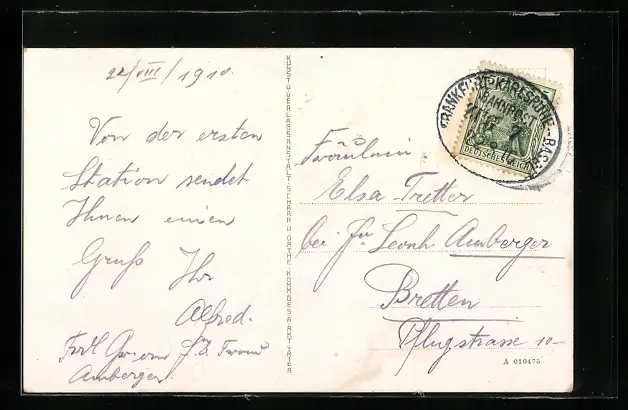 22/VIII/1910.
Von der ersten
Station sendet
Ihnen einen
Gruß Ihr
Alfred.
Amberger
KUNST-VERLAGSANSTALT SCHAAR U. DATHE KOMM.GES A. AKT. TRIER
FRANKFURT-KARLSRUHE-BASEL
BAHNPOST
DEUTSCHES REICH
Fräulein
Elsa Tretter
bei Leonh. Amberger
Bretten
Pflugstrasse 10
A 010475